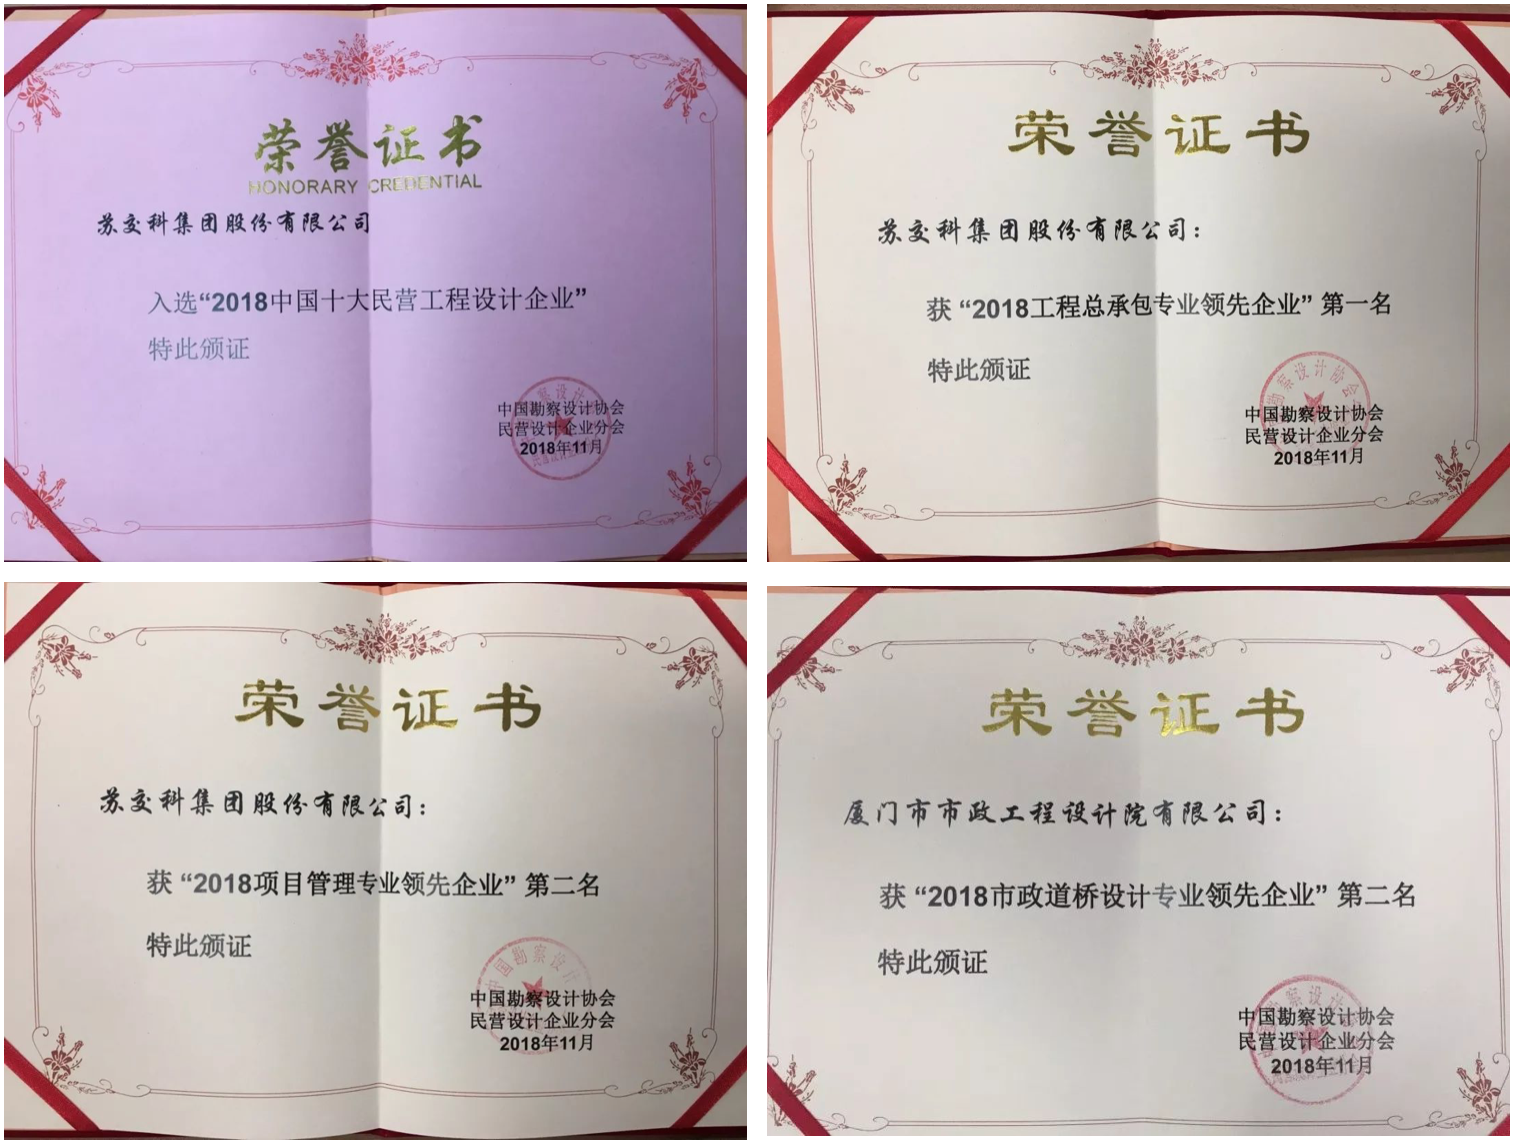 荣誉证书
HONORARY CREDENTIAL
苏交科集团股份有限公司
入选“2018中国十大民营工程设计企业”
特此颁证
中国勘察设计协会
民营设计企业分会
2018年11月
荣誉证书
苏交科集团股份有限公司：
获 “2018工程总承包专业领先企业” 第一名
特此颁证
中国勘察设计协会
民营设计企业分会
2018年11月
荣誉证书
苏交科集团股份有限公司：
获 “2018项目管理专业领先企业” 第二名
特此颁证
中国勘察设计协会
民营设计企业分会
2018年11月
荣誉证书
厦门市市政工程设计院有限公司：
获 “2018市政道桥设计专业领先企业” 第二名
特此颁证
中国勘察设计协会
民营设计企业分会
2018年11月